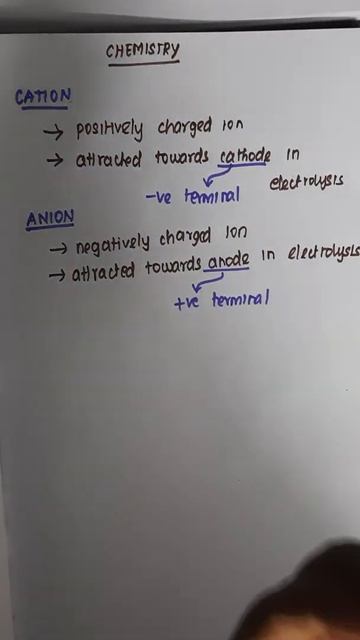 CHEMISTRY
CATION
→ positively charged ion
→ attracted towards cathode in
electrolysis
-ve terminal
ANION
→ negatively charged ion
→ attracted towards anode in electrolysis
+ve terminal